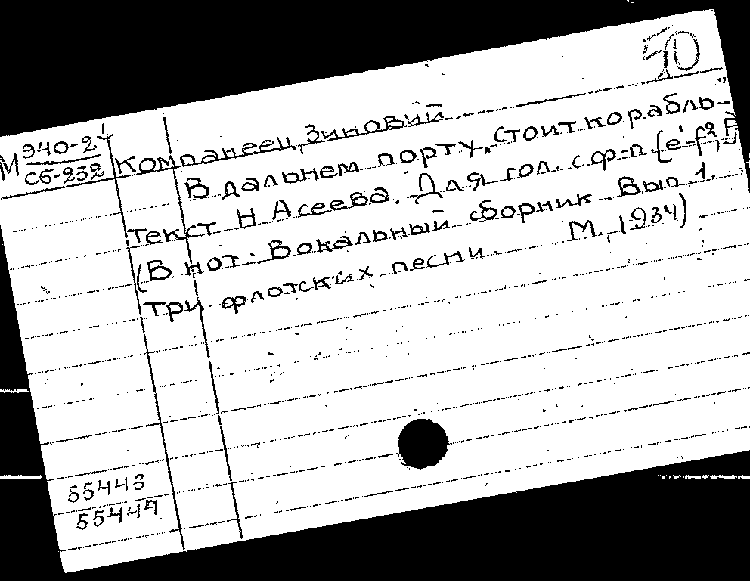 50
М 940-2
Сб-232
Компанеец, Зиновий
В дальнем порту. "Стоит корабль"
Текст Н Асеева. Для гол. с ф-п [e'-f²,
(В нот: Вокальный сборник. Вып 1.
Три флотских песни. М, 1934)
55443
55444